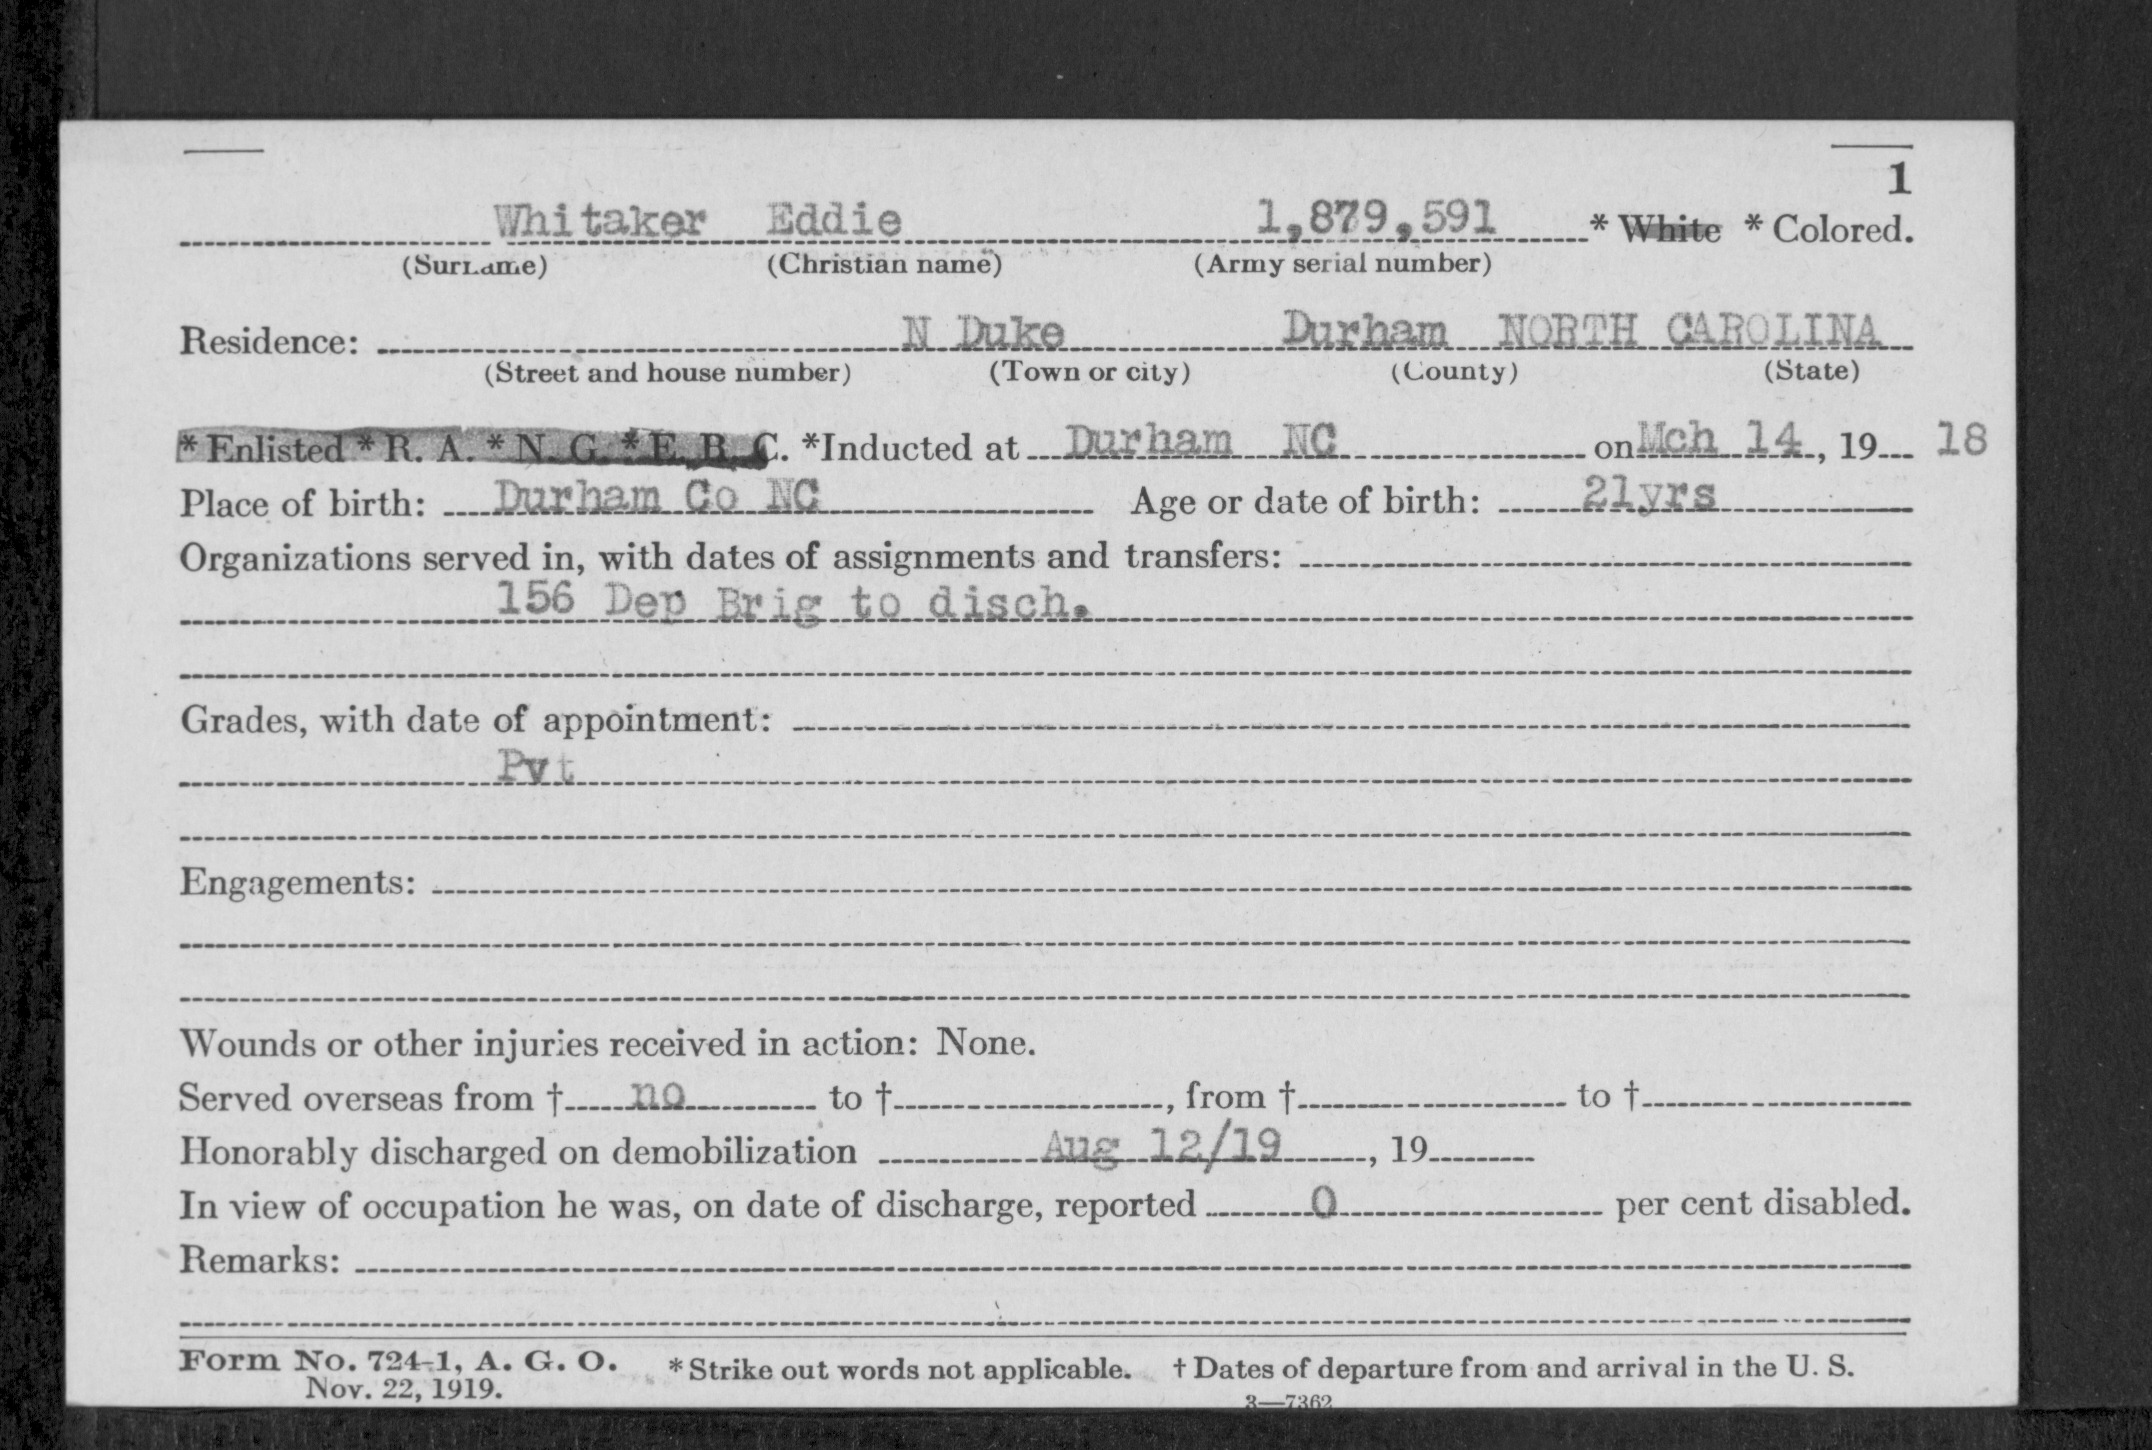 1
Whitaker Eddie 1,879,591 * White * Colored.
(Surname) (Christian name) (Army serial number)
Residence: N Duke Durham NORTH CAROLINA
(Street and house number) (Town or city) (County) (State)
* Enlisted * R. A. * N. G. * E. R. C. *Inducted at Durham NC on Mch 14, 19 18
Place of birth: Durham Co NC Age or date of birth: 21yrs
Organizations served in, with dates of assignments and transfers:
156 Dep Brig to disch.
Grades, with date of appointment:
Pvt
Engagements:
Wounds or other injuries received in action: None.
Served overseas from † no to † , from † to †
Honorably discharged on demobilization Aug 12/19 , 19
In view of occupation he was, on date of discharge, reported 0 per cent disabled.
Remarks:
Form No. 724-1, A. G. O. * Strike out words not applicable. † Dates of departure from and arrival in the U. S.
Nov. 22, 1919.
3—7362